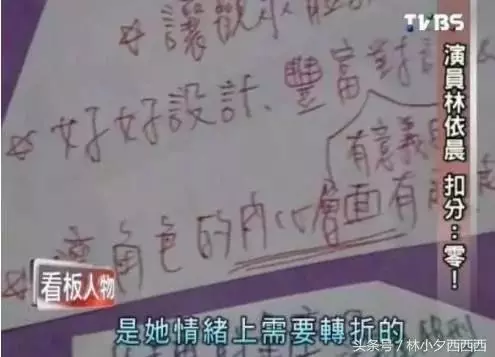 TVBS
演員林依晨 扣分:零!
☆讓觀眾
☆好好設計、豐富對
有意義
角色的內心層面有
看板人物
是她情緒上需要轉折的
头条号 / 林小夕西西西